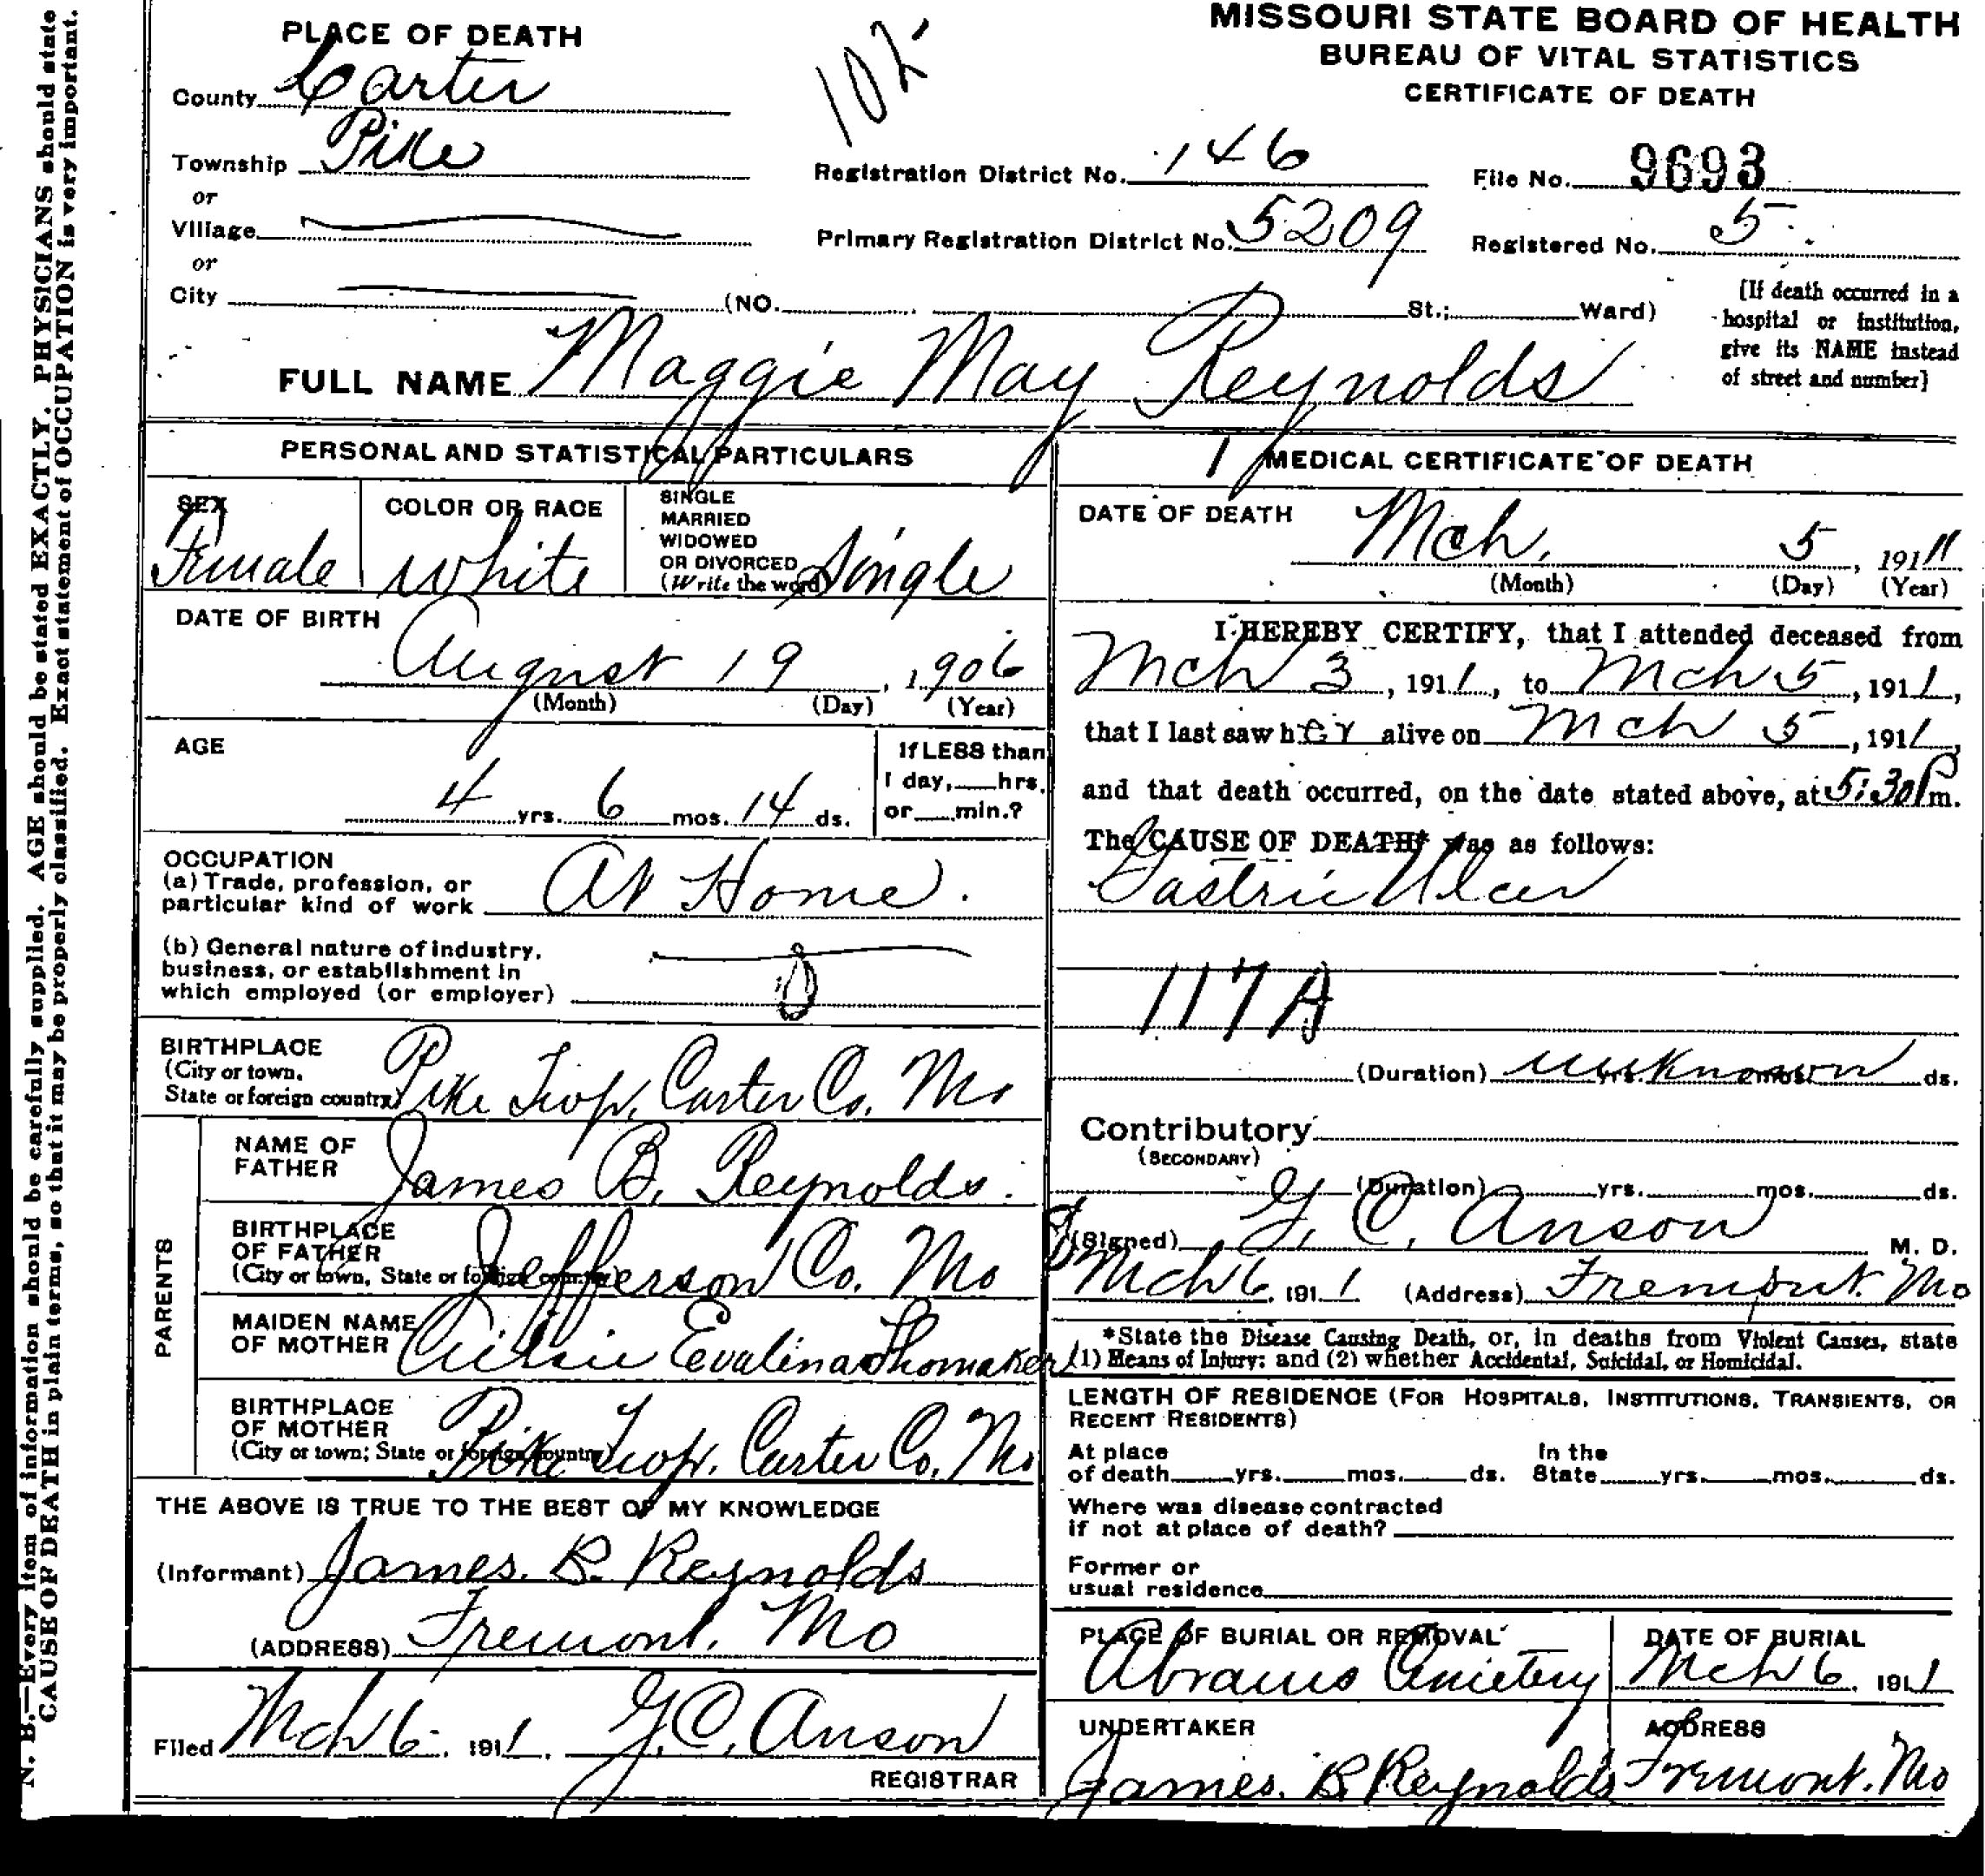 N. B.—Every item of information should be carefully supplied. AGE should be stated EXACTLY. PHYSICIANS should state
CAUSE OF DEATH in plain terms, so that it may be properly classified. Exact statement of OCCUPATION is very important.
MISSOURI STATE BOARD OF HEALTH
BUREAU OF VITAL STATISTICS
CERTIFICATE OF DEATH
102
PLACE OF DEATH
County Carter
Township Pike
or
Village
or
City (NO. St.; Ward)
Registration District No. 146
File No. 9693
Primary Registration District No. 5209
Registered No. 5
[If death occurred in a
hospital or institution,
give its NAME instead
of street and number]
FULL NAME Maggie May Reynolds
PERSONAL AND STATISTICAL PARTICULARS
SEX
Female
COLOR OR RACE
White
SINGLE
MARRIED
WIDOWED
OR DIVORCED
(Write the word) Single
DATE OF BIRTH
August 19, 1906
(Month) (Day) (Year)
AGE
4 yrs. 6 mos. 14 ds.
If LESS than
1 day, hrs.
or min.?
OCCUPATION
(a) Trade, profession, or
particular kind of work At Home.
(b) General nature of industry,
business, or establishment in
which employed (or employer)
BIRTHPLACE
(City or town,
State or foreign country) Pike Twp. Carter Co. Mo
PARENTS
NAME OF
FATHER James B. Reynolds.
BIRTHPLACE
OF FATHER
(City or town, State or foreign country) Jefferson Co. Mo
MAIDEN NAME
OF MOTHER Evalina
BIRTHPLACE
OF MOTHER
(City or town; State or foreign country) Pike Twp. Carter Co. Mo
THE ABOVE IS TRUE TO THE BEST OF MY KNOWLEDGE
(Informant) James. B. Reynolds
(ADDRESS) Fremont. Mo
Filed Mch 6 1911. G.C. Anson
REGISTRAR
MEDICAL CERTIFICATE OF DEATH
DATE OF DEATH
Mch. 5, 1911
(Month) (Day) (Year)
I HEREBY CERTIFY, that I attended deceased from
Mch 3, 1911, to Mch 5, 1911,
that I last saw her alive on Mch 5, 1911,
and that death occurred, on the date stated above, at 5:30 P m.
The CAUSE OF DEATH* was as follows:
Gastric Ulcer
117A
(Duration) unknown yrs. mos. ds.
Contributory
(SECONDARY)
(Duration) yrs. mos. ds.
(Signed) G. C. Anson M. D.
Mch 6, 1911 (Address) Fremont. Mo
*State the Disease Causing Death, or, in deaths from Violent Causes, state
(1) Means of Injury; and (2) whether Accidental, Suicidal, or Homicidal.
LENGTH OF RESIDENCE (FOR HOSPITALS, INSTITUTIONS, TRANSIENTS, OR
RECENT RESIDENTS)
At place
of death yrs. mos. ds.
In the
State yrs. mos. ds.
Where was disease contracted
if not at place of death?
Former or
usual residence
PLACE OF BURIAL OR REMOVAL
Abrams Cemetery
DATE OF BURIAL
Mch 6, 1911
UNDERTAKER
James. B. Reynolds
ADDRESS
Fremont. Mo